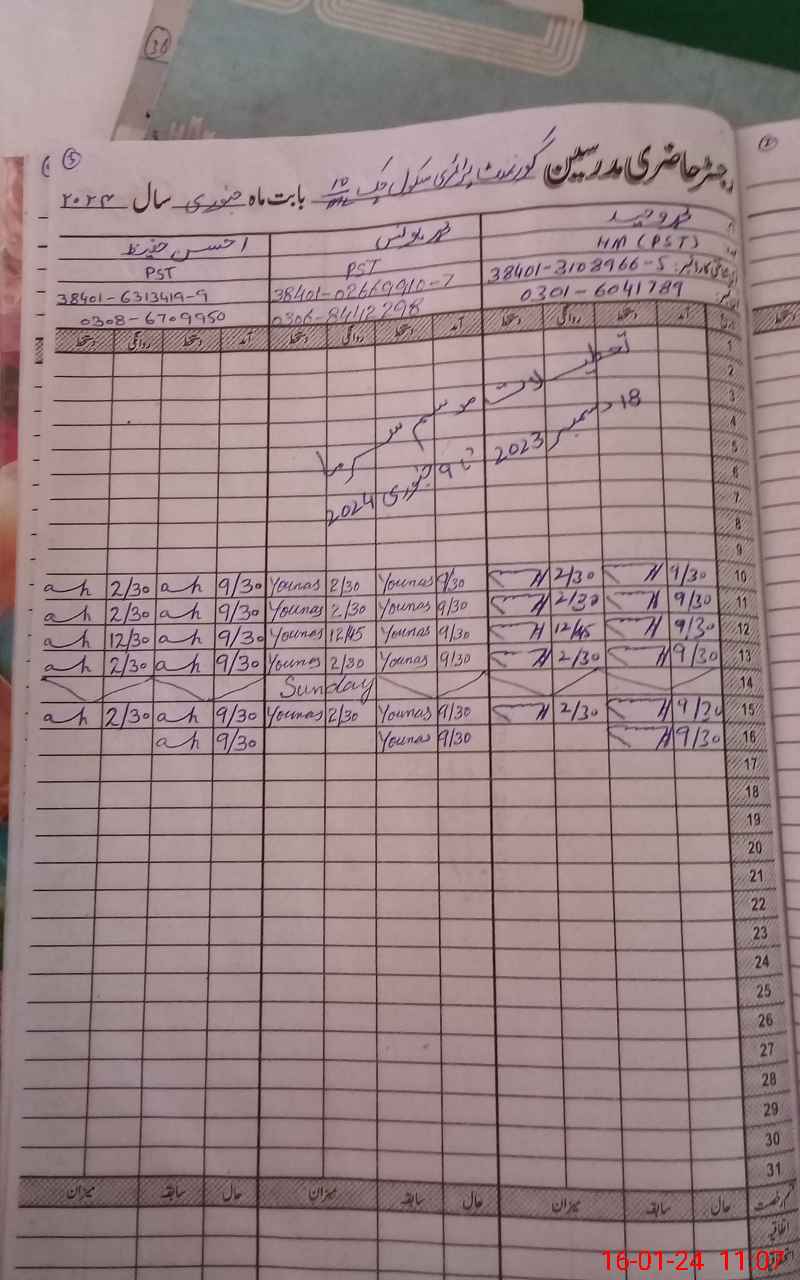 رجسٹر حاضری مدرسین گورنمنٹ پرائمری سکول چک 10 بابت ماہ جنوری سال ۲۰۲۴
محمد وحید محمد یونس احسن حفیظ
HM (PST) PST PST
38401-3108966-5 38401-02669910-7 38401-6313419-9
0301-6041789 0306-8412298 0308-6709950
آمد دستخط روانگی دستخط آمد دستخط روانگی دستخط آمد دستخط روانگی دستخط
1
2
3
4
5
6
7
8
9
تعطیلات موسم سرما
18 دسمبر 2023 تا 9 جنوری 2024
10 9/30 H 2/30 H 9/30 Younas 2/30 Younas 9/30 ah 2/30 ah
11 9/30 H 2/30 H 9/30 Younas 2/30 Younas 9/30 ah 2/30 ah
12 9/30 H 12/45 H 9/30 Younas 12/45 Younas 9/30 ah 12/30 ah
13 9/30 H 2/30 H 9/30 Younas 2/30 Younas 9/30 ah 2/30 ah
14 Sunday
15 9/30 H 2/30 H 9/30 Younas 2/30 Younas 9/30 ah 2/30 ah
16 9/30 H 9/30 Younas 9/30 ah
17
18
19
20
21
22
23
24
25
26
27
28
29
30
31
قسم رخصت حال سابقہ میزان حال سابقہ میزان حال سابقہ میزان
اتفاقیہ
16-01-24 11:07